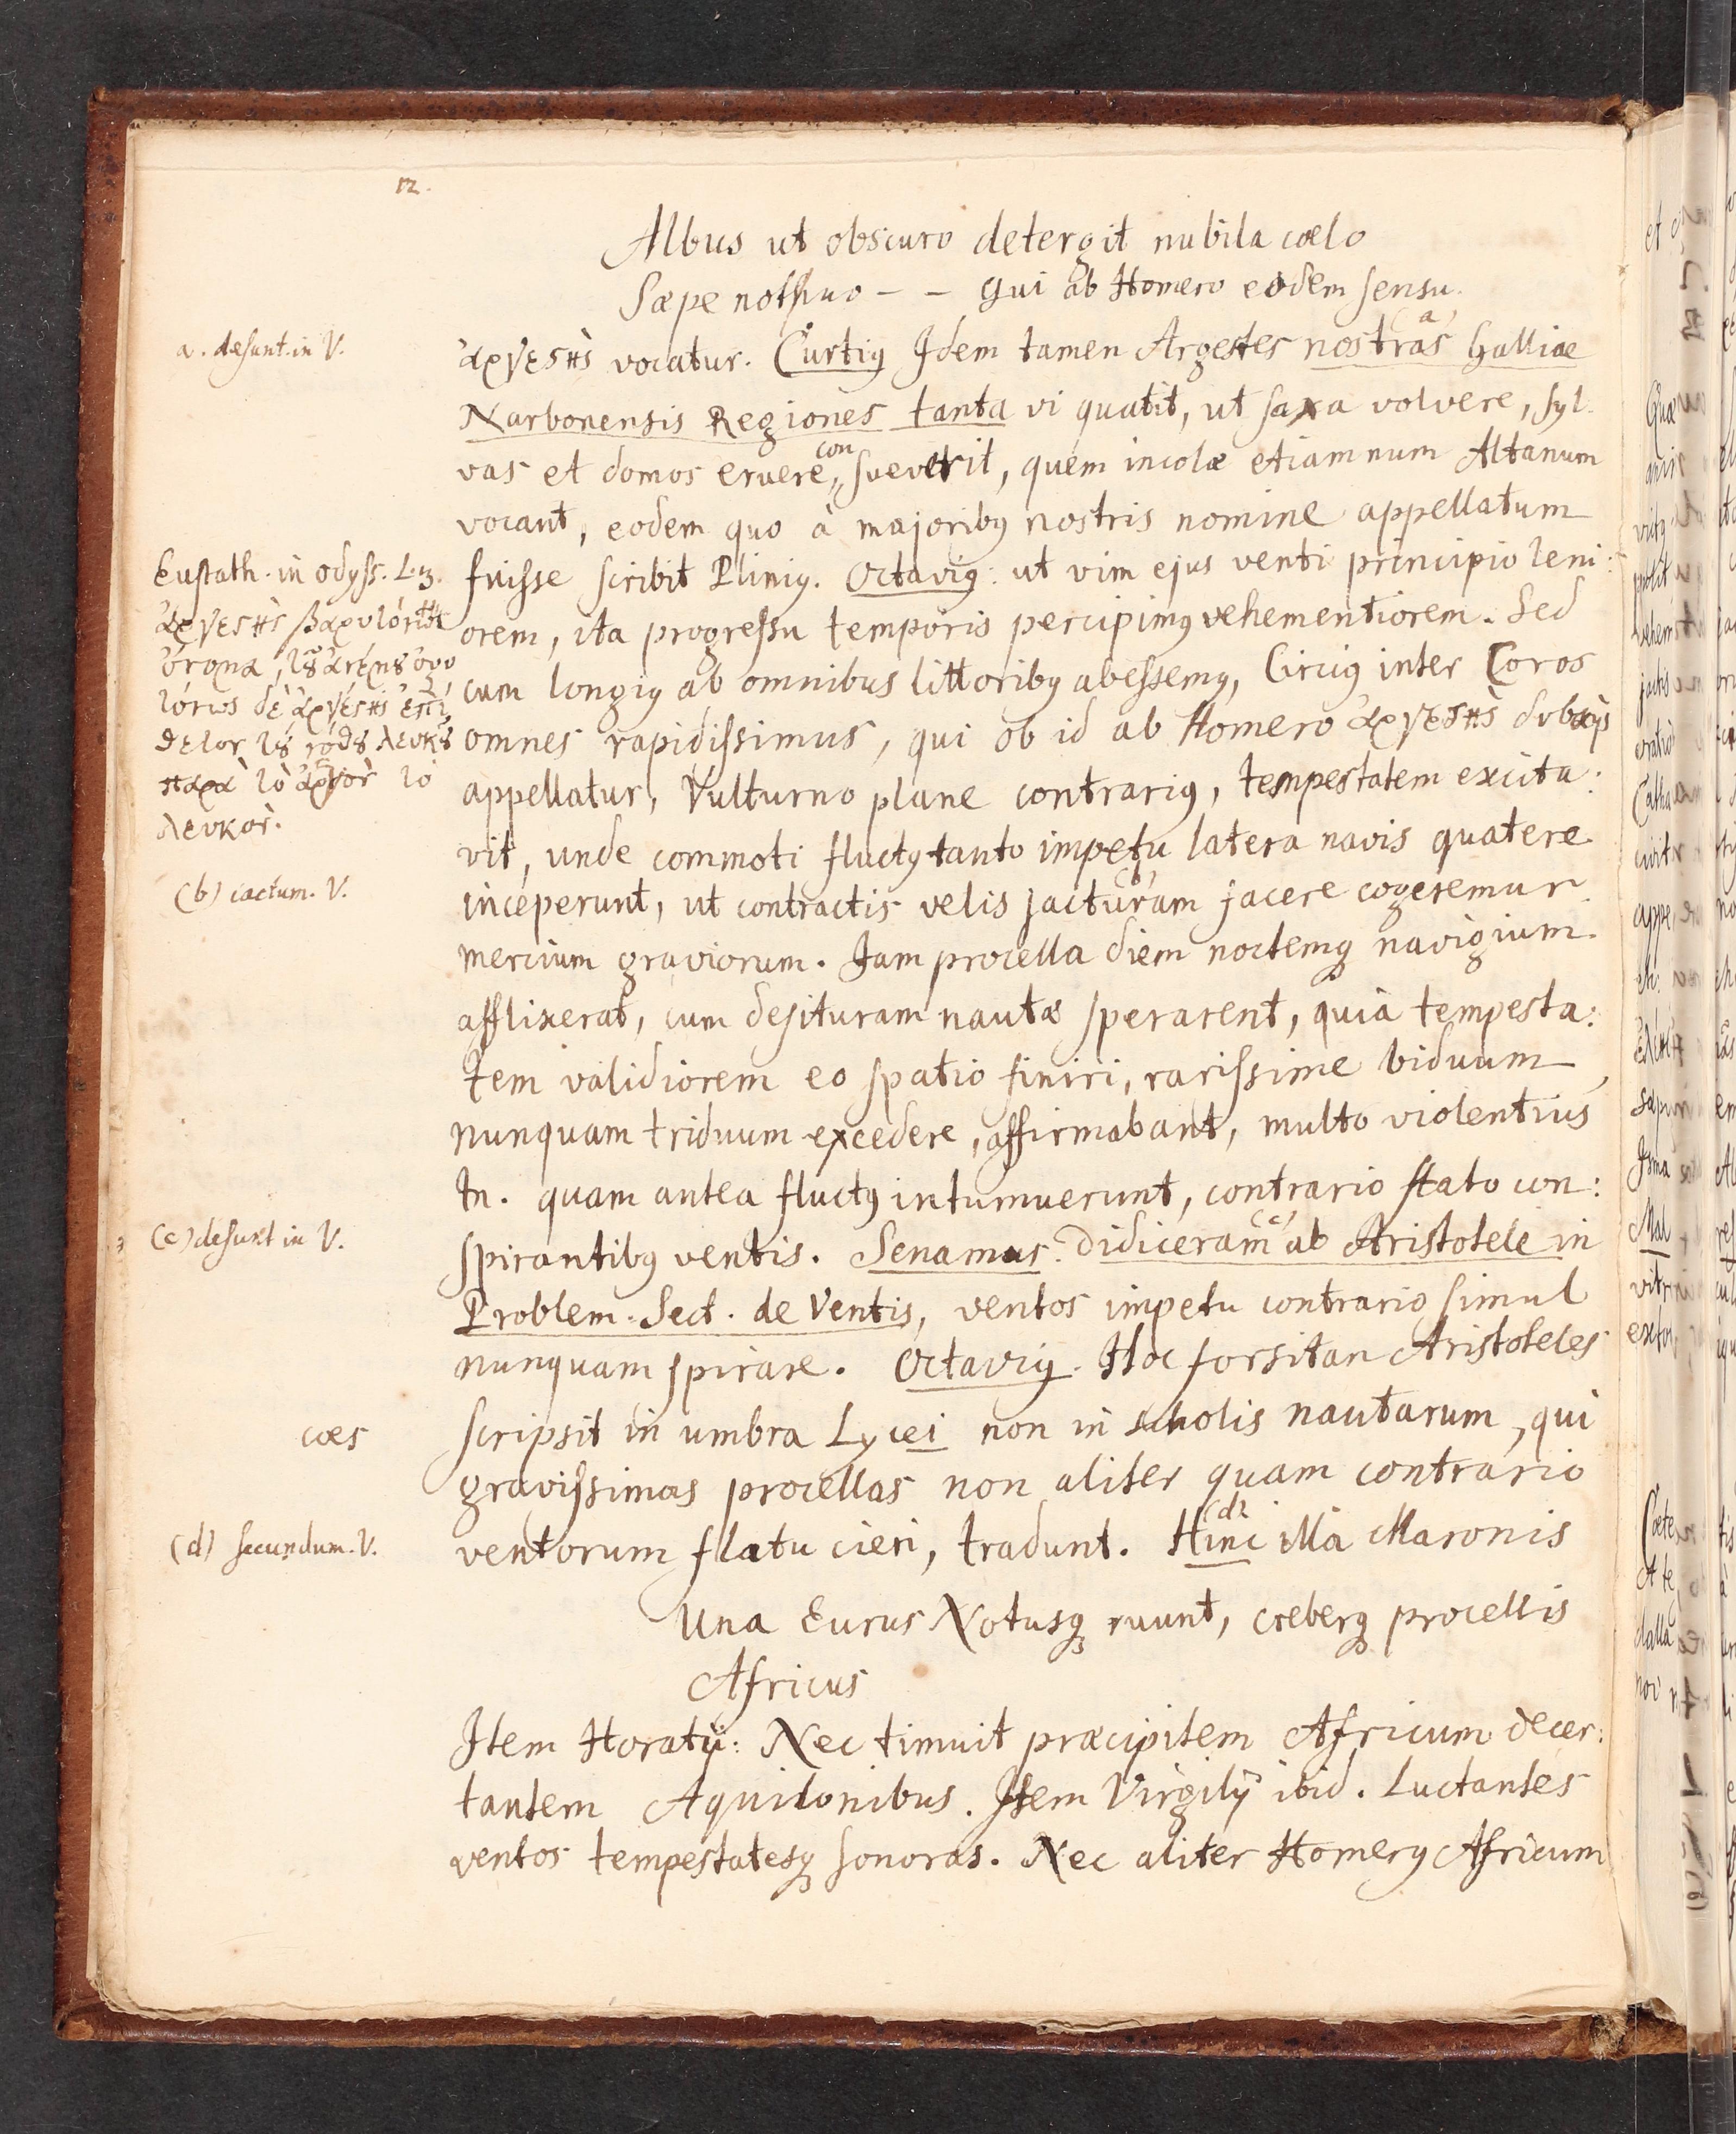 12.
Albus ut obscuro detergit nubila cœlo
Sæpe nothus – – qui ab Homero eodem sensu
a. desunt in V.
ἀργεστὴς vocatur. Curtiꝯ Idem tamen Argestes nostras (a) Galliæ
Narbonensis Regiones tanta vi quatit, ut saxa volvere, syl-
vas et domos eruere con sueverit, quem incolæ etiamnum Altanum
vocant, eodem quo à majoribꝯ nostris nomine appellatum
Eustath. in odyss. L.
fuisse scribit Pliniꝯ. Octaviꝯ: ut vim ejus venti principio leni:
ἀργεστὴς βαρυτόνως
orem, ita progressu temporis percipimꝯ vehementiorem. Sed
ὄνομα, τοῦ ἀνέμου
cum longiꝯ ab omnibus littoribꝯ abessemꝯ, Circiꝯ inter Coros
τόνως δὲ ἀργέστης ἐπί
omnes rapidissimus, qui ob id ab Homero ἀργεστὴς
θετον τοῦ νότου λευκοῦ
παρὰ τὸ ἀργὸν τὸ
appellatur, Vulturno plane contrariꝯ, tempestatem excita:
λευκόν.
vit, unde commoti fluctꝯ tanto impetu latera navis quatere
(b) iactum. V.
inceperunt, ut contractis velis jacturam (b) facere cogeremur
mercium graviorum. Jam procella diem noctemq navigium
afflixerat, cum desituram nautæ sperarent, quia tempesta:
tem validiorem eo spatio finiri, rarissime biduum,
nunquam triduum excedere, affirmabant, multo violentius
In. quam antea fluctꝯ intumuerunt, contrario flato con:
(c) desunt in V.
spirantibꝯ ventis. Senamus. Didiceram (c) ab Aristotele in
Problem. Sect. de Ventis, ventos impetu contrario simul
nunquam spirare. Octaviꝯ. Hoc forsitan Aristoteles
coes
scripsit in umbra Lycei non in scholis nautarum, qui
gravissimas procellas non aliter quam contrario
(d) secundum. V.
ventorum flatu cieri, tradunt. Hinc (d) illa Maronis
Una Eurus Notusq ruunt, creberq procellis
Africus
Item Horatij: Nec timuit præcipitem Africum decer:
tantem Aquilonibus. Item Virgilij ibid. Luctantes
ventos tempestatesq sonoras. Nec aliter Homerꝯ Africum